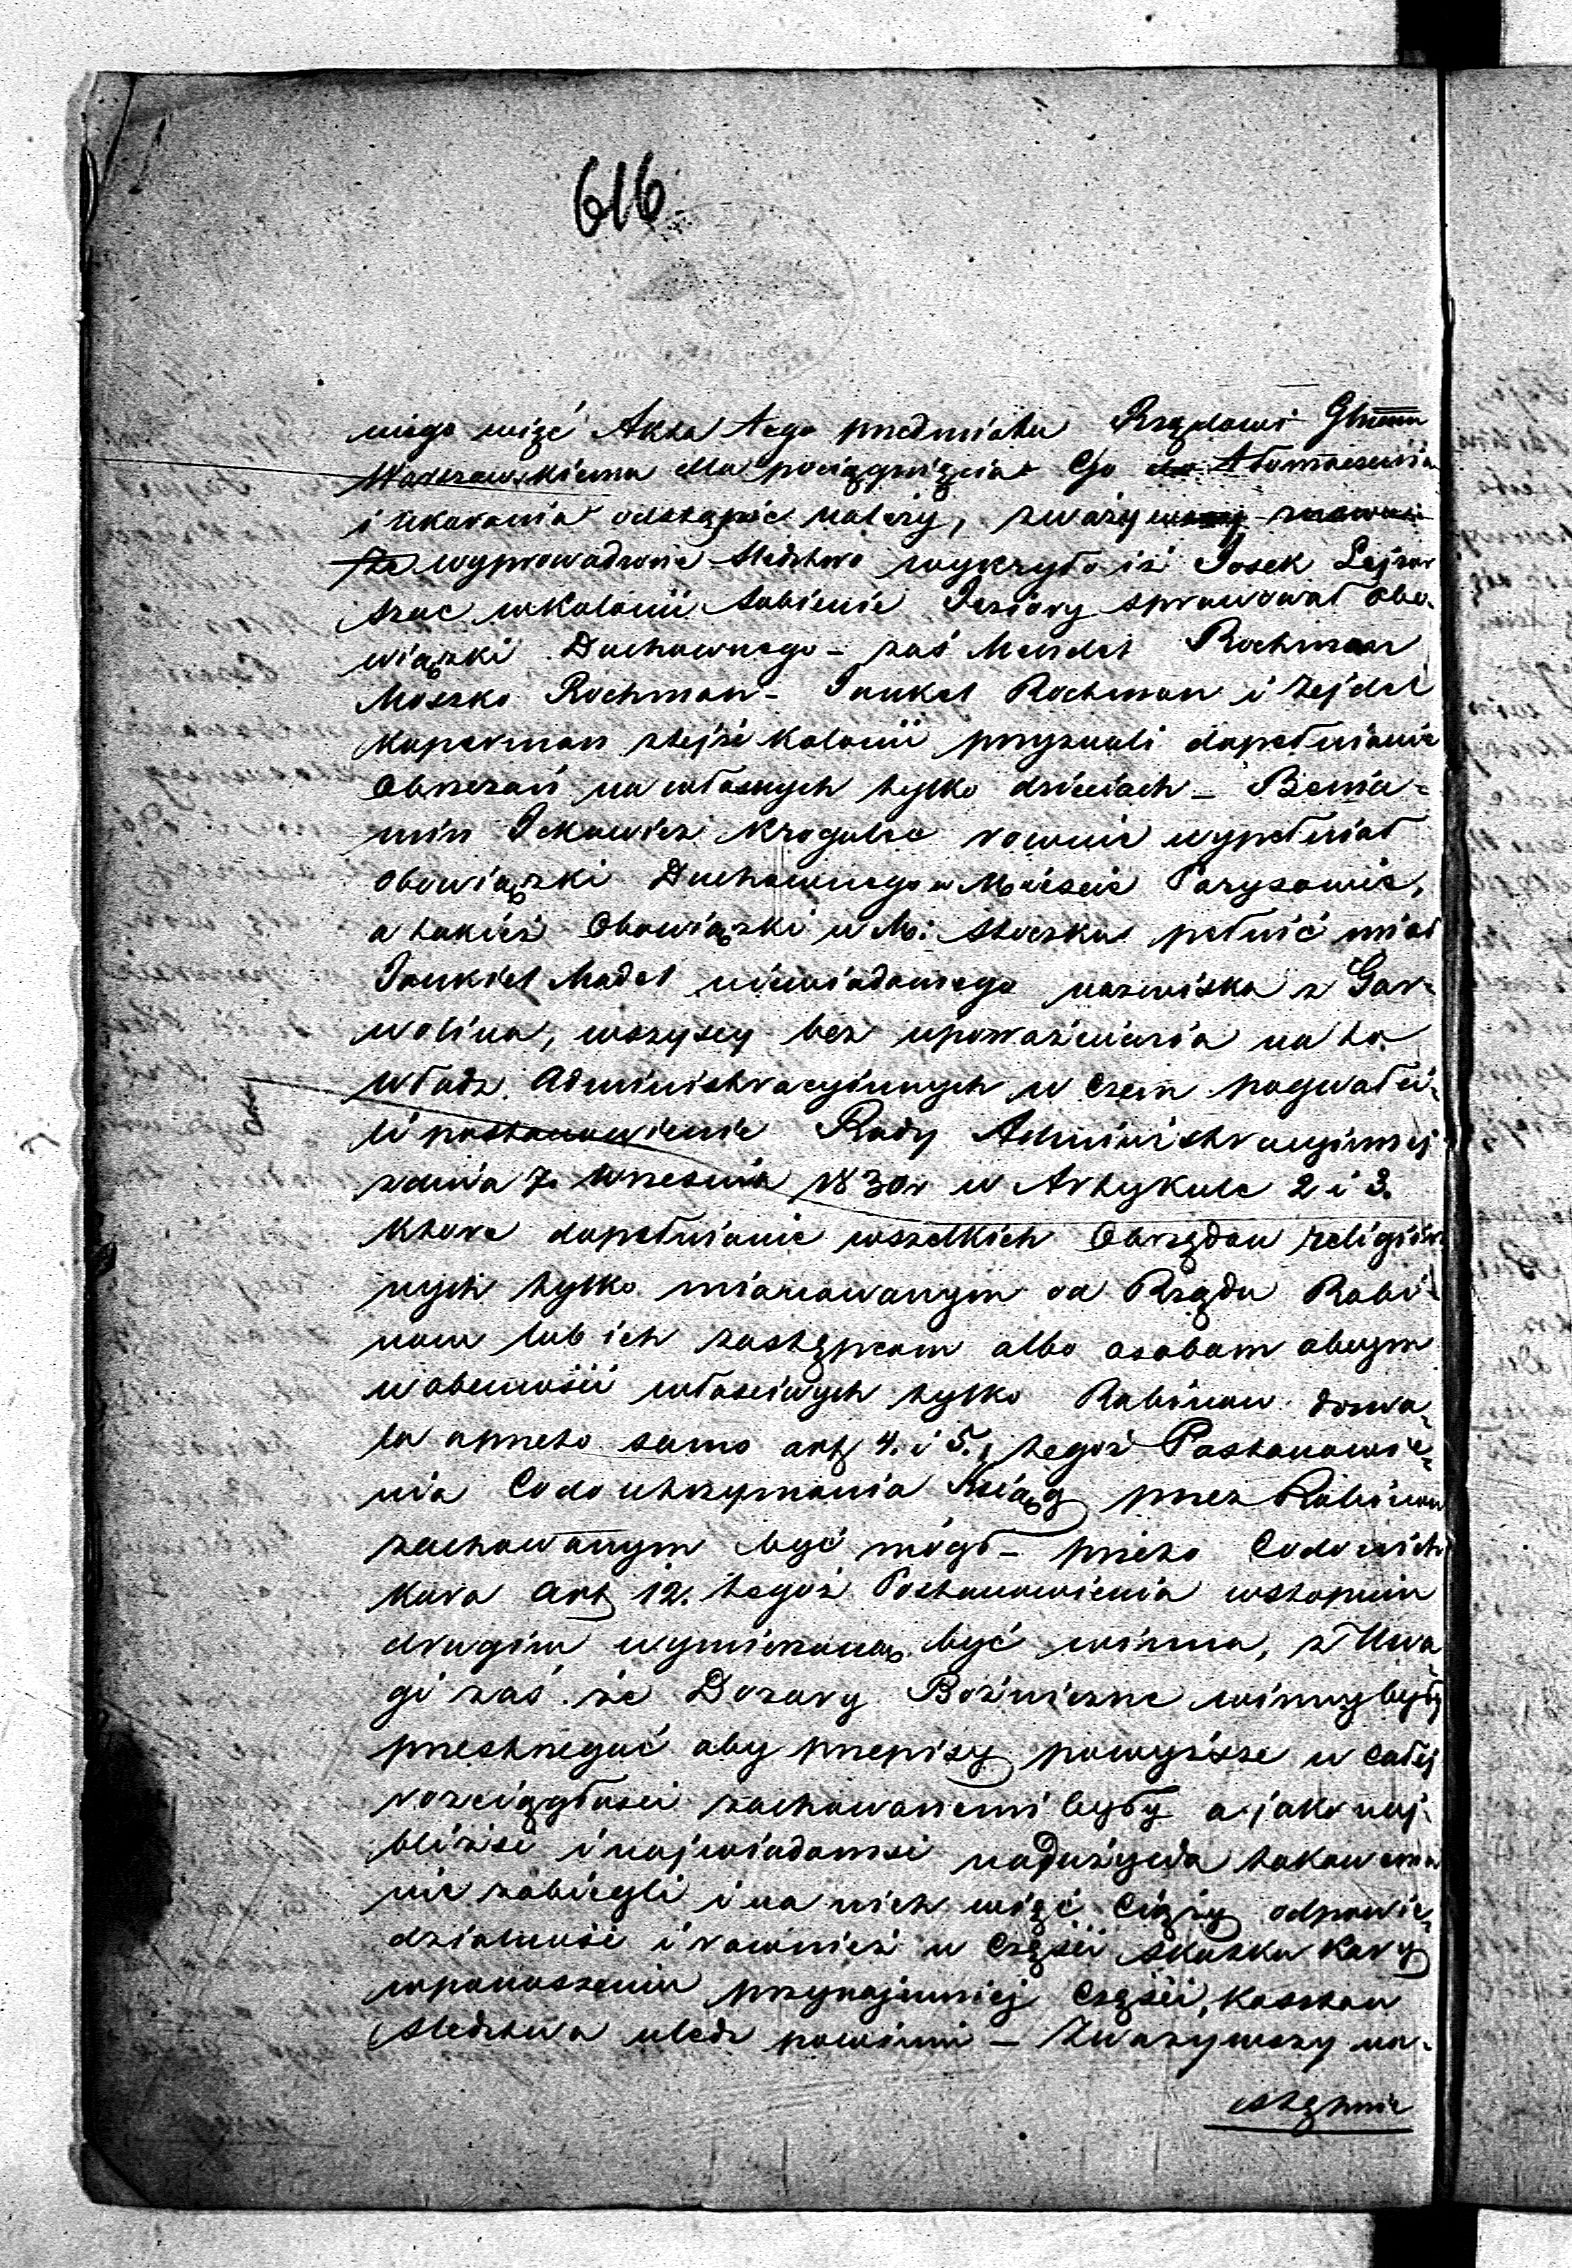 616.
niego więć Akta tego przedmiotu Rządowi Glnemu
Warszawskiemu dla pociągnięcia Go do tłomaczenia
i ukarania odstąpić należy, zważywszy
że wyprowadzone Śledztwo wykryło iż Josek Lejzor
trac w Kolonii Sobienie Jeziory sprawował obo-
wiązki Duchownego - zaś Mendel Rochman
Moszko Rochman - Jankel Rochman i Zejdel
Kuperman ztejże Kolonii przyznali dopełnianie
Obrzezań na własnych tylko dzieciach - Benia-
min Ickowicz Krogulec rownie wypełniał
obowiązki Duchownego w Mieście Parysowie,
a takież Obowiązki w M. Stoczku pełnić miał
Jankiel Madel niewiadomego nazwiska z Gar-
wolina, wszyscy bez upoważnienia na to
Władz Administracyinych w czem pogwałci-
li postanowienie Rady Administracyinej
z dnia 7. Wrzesnia 1830 r w Artykule 2 i 3.
Ktore dopełnianie wszelkich Obrzędow religiin
nych tylko mianowanym od Rządu Rabi-
nom lub ich zastępcom albo osobom obcym
w obecności właściwych tylko Rabinow dozwa-
la a przeto samo art 4. i 5. tegoż Postanowie-
nia Co do utrzymania Ksiąg przez Rabinow
zachowanym być mógł - przeto Co do nich
Kara art 12. tegoż Postanowienia w stopniu
drugim wymierzona być winna, z Uwa-
gi zaś że Dozory Bożniczne winny były
przestrzegać aby przepisy powyższe w całej
rozciągłości zachowanemi były a jako naj-
bliżsi i najwiadomsi nadużycia takowemu
nie zabiegli i na nich więć Ciąży odpowie-
dzialność i rownież w Części skutku Kary
w ponoszeniu przynajmniej Części, Kosztow
Śledztwa uledz powinni - Zważywszy na-
stępnie